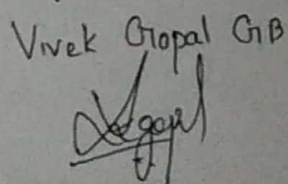 Vivek Gopal GB